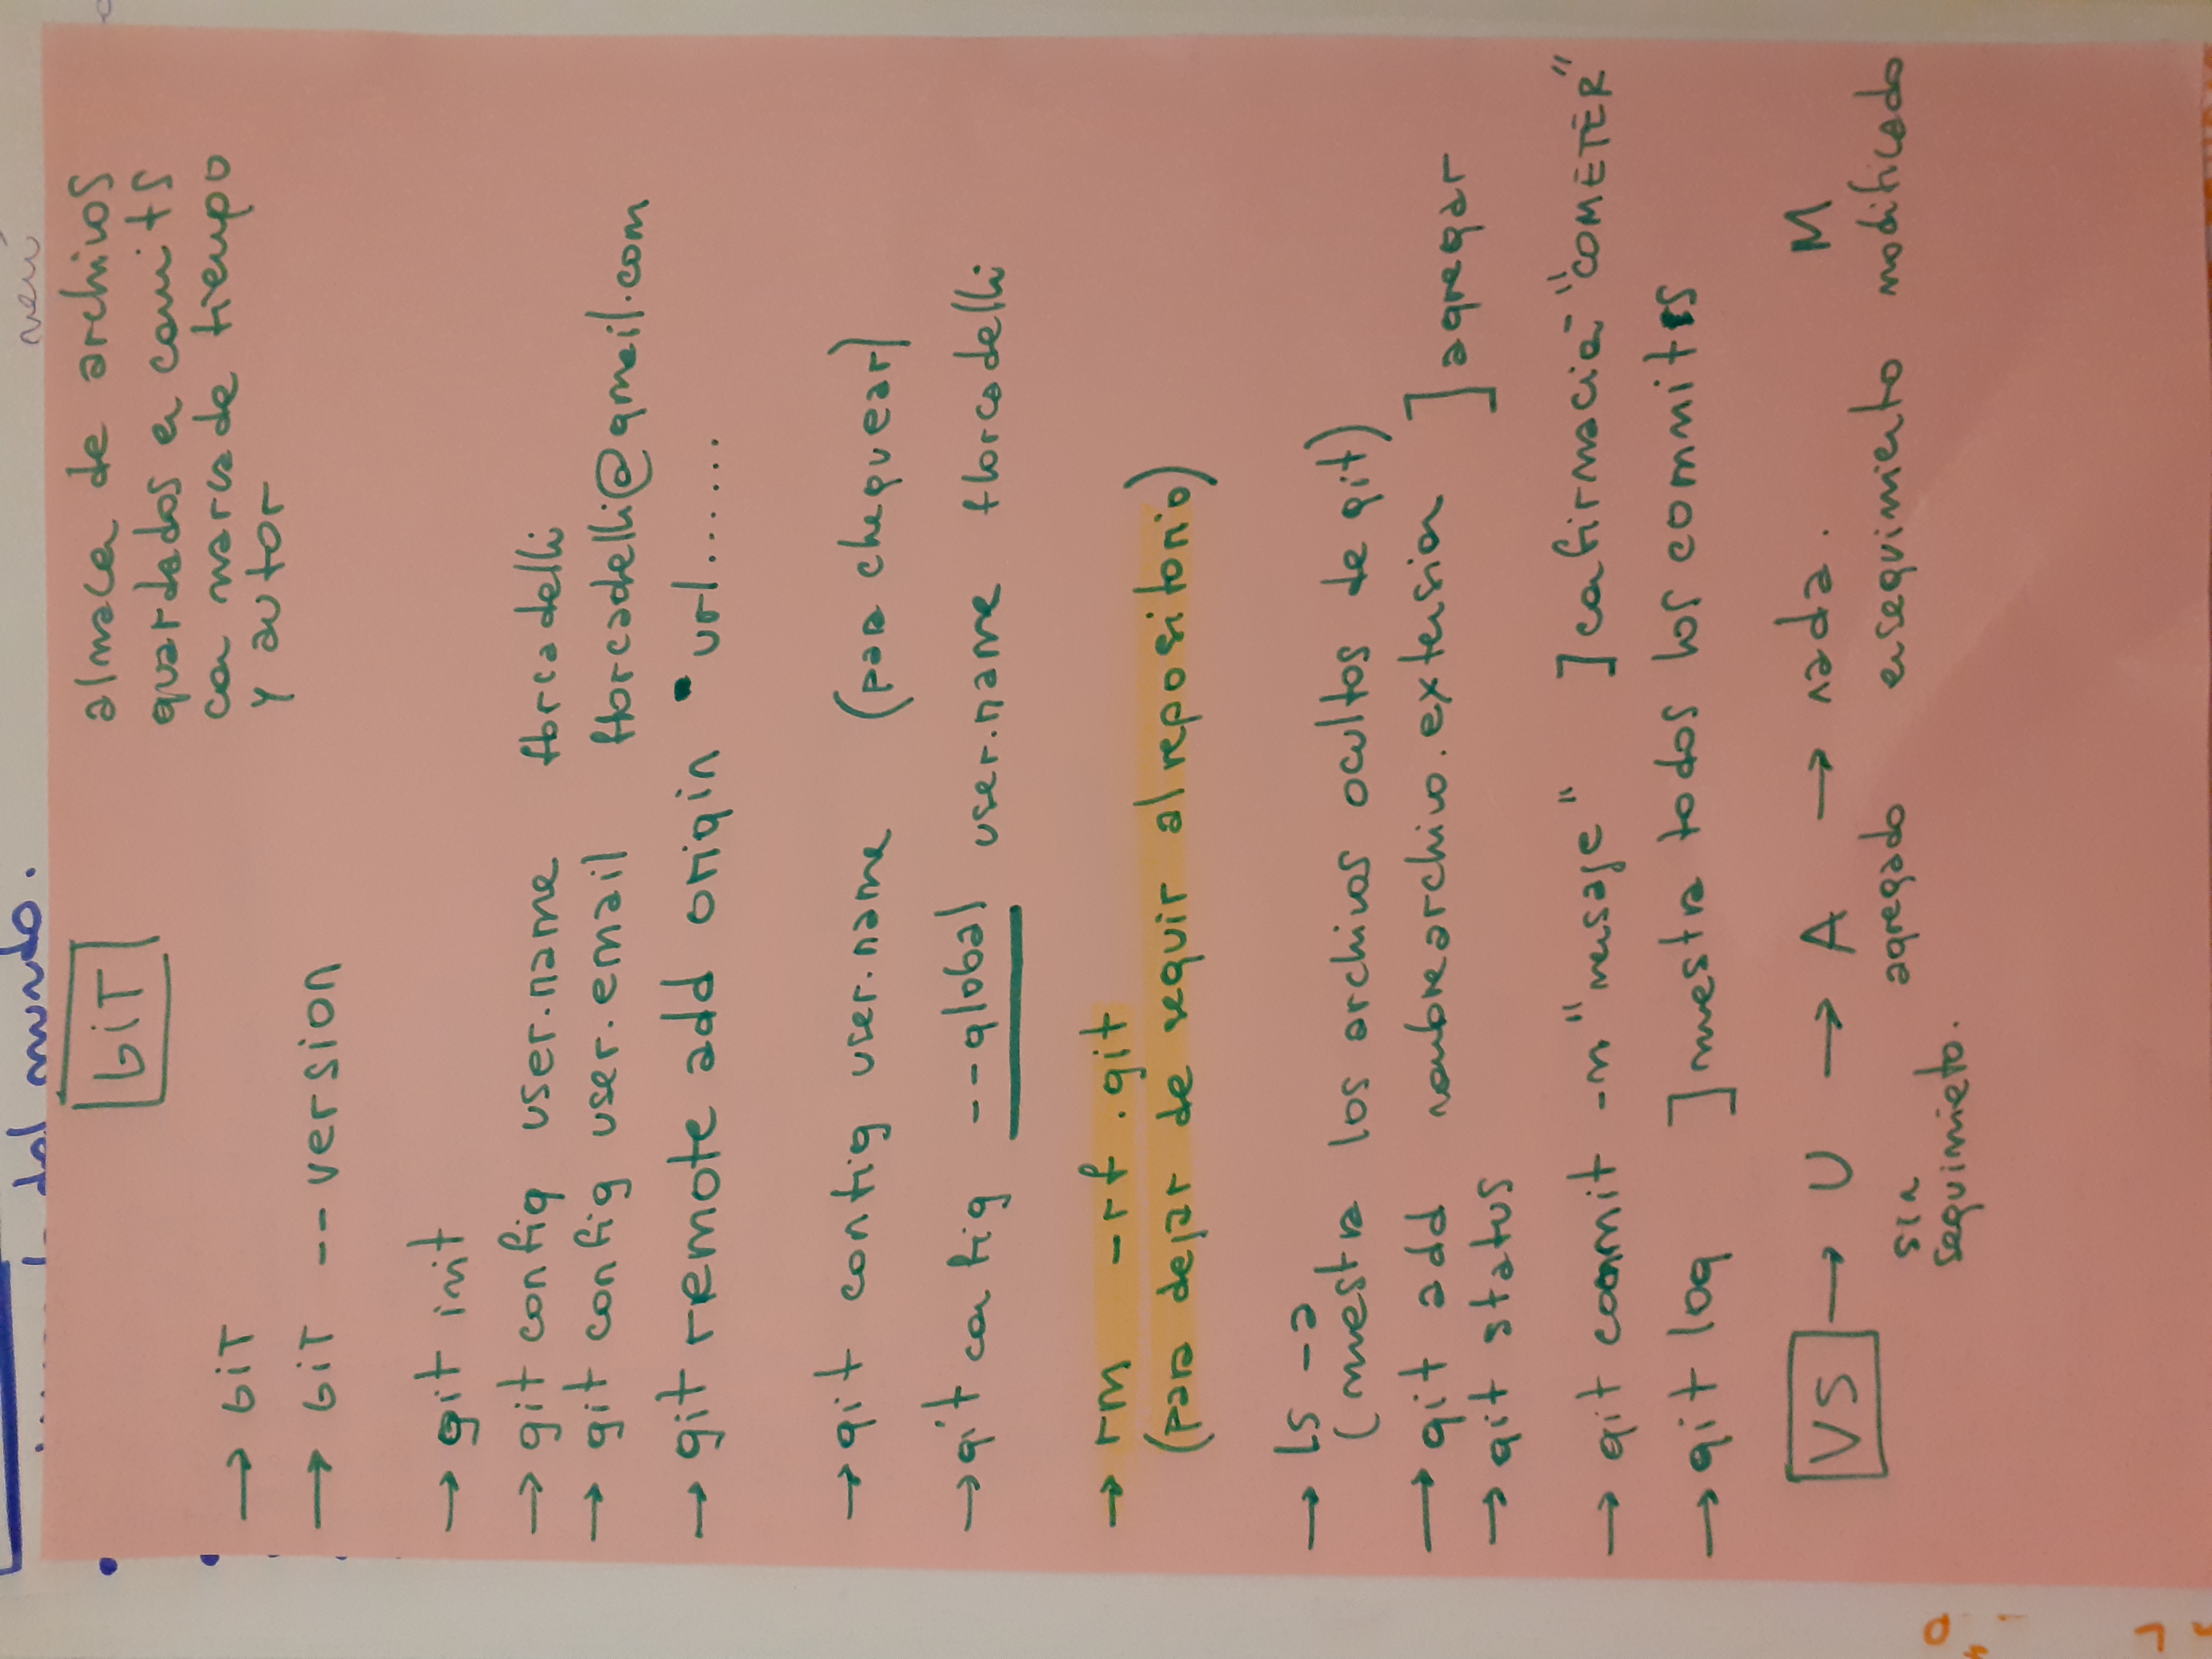 del mundo.
GiT
almacen de archivos
guardados en comits
con marca de tiempo
y autor
→ GiT
→ GiT --version
→ git init
→ git config user.name florcadelli
→ git config user.email florcadelli@gmail.com
→ git remote add origin url......
→ git config user.name (para chequear)
→ git config --global user.name florcadelli
→ rm -rf .git
(para dejar de seguir al repositorio)
→ ls -a
(muestra los archivos ocultos de git)
→ git add nombrearchivo.extension ] agregar
→ git status
→ git commit -m "mensaje" ] confirmacion - "COMETER"
→ git log ] muestra todos los commits
VS → U → A → nada. M
sin agregado en seguimiento modificado
seguimieto.